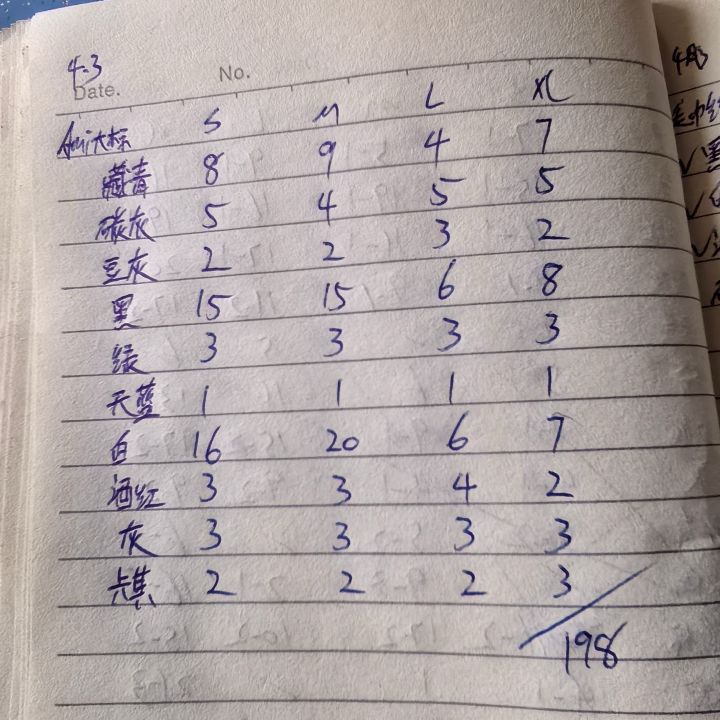 4-3
Date.
No.
S M L XL
Ami大标
藏青 8 9 4 7
碳灰 5 4 5 5
豆灰 2 2 3 2
黑 15 15 6 8
绿 3 3 3 3
天蓝 1 1 1 1
白 16 20 6 7
酒红 3 3 4 2
灰 3 3 3 3
卡其 2 2 2 3
198
4月
√黑